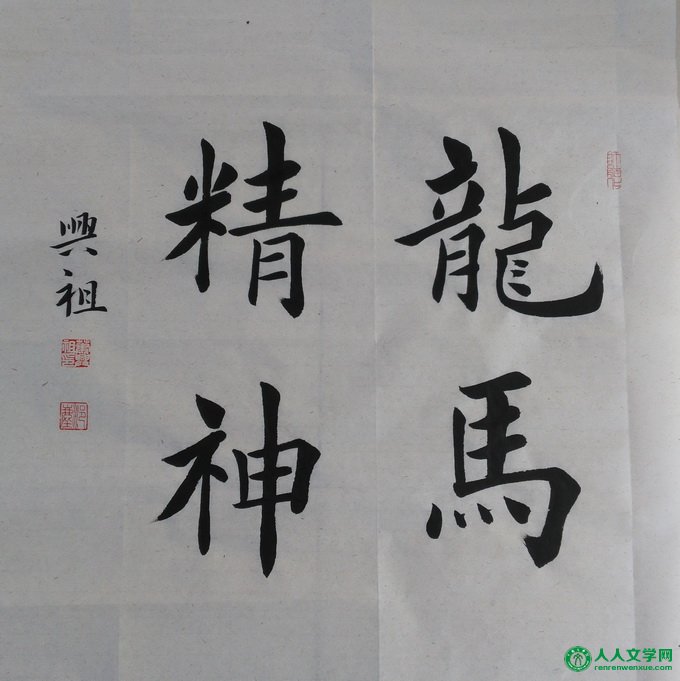 龍馬
精神
興祖
人人文学网
renrenwenxue.com